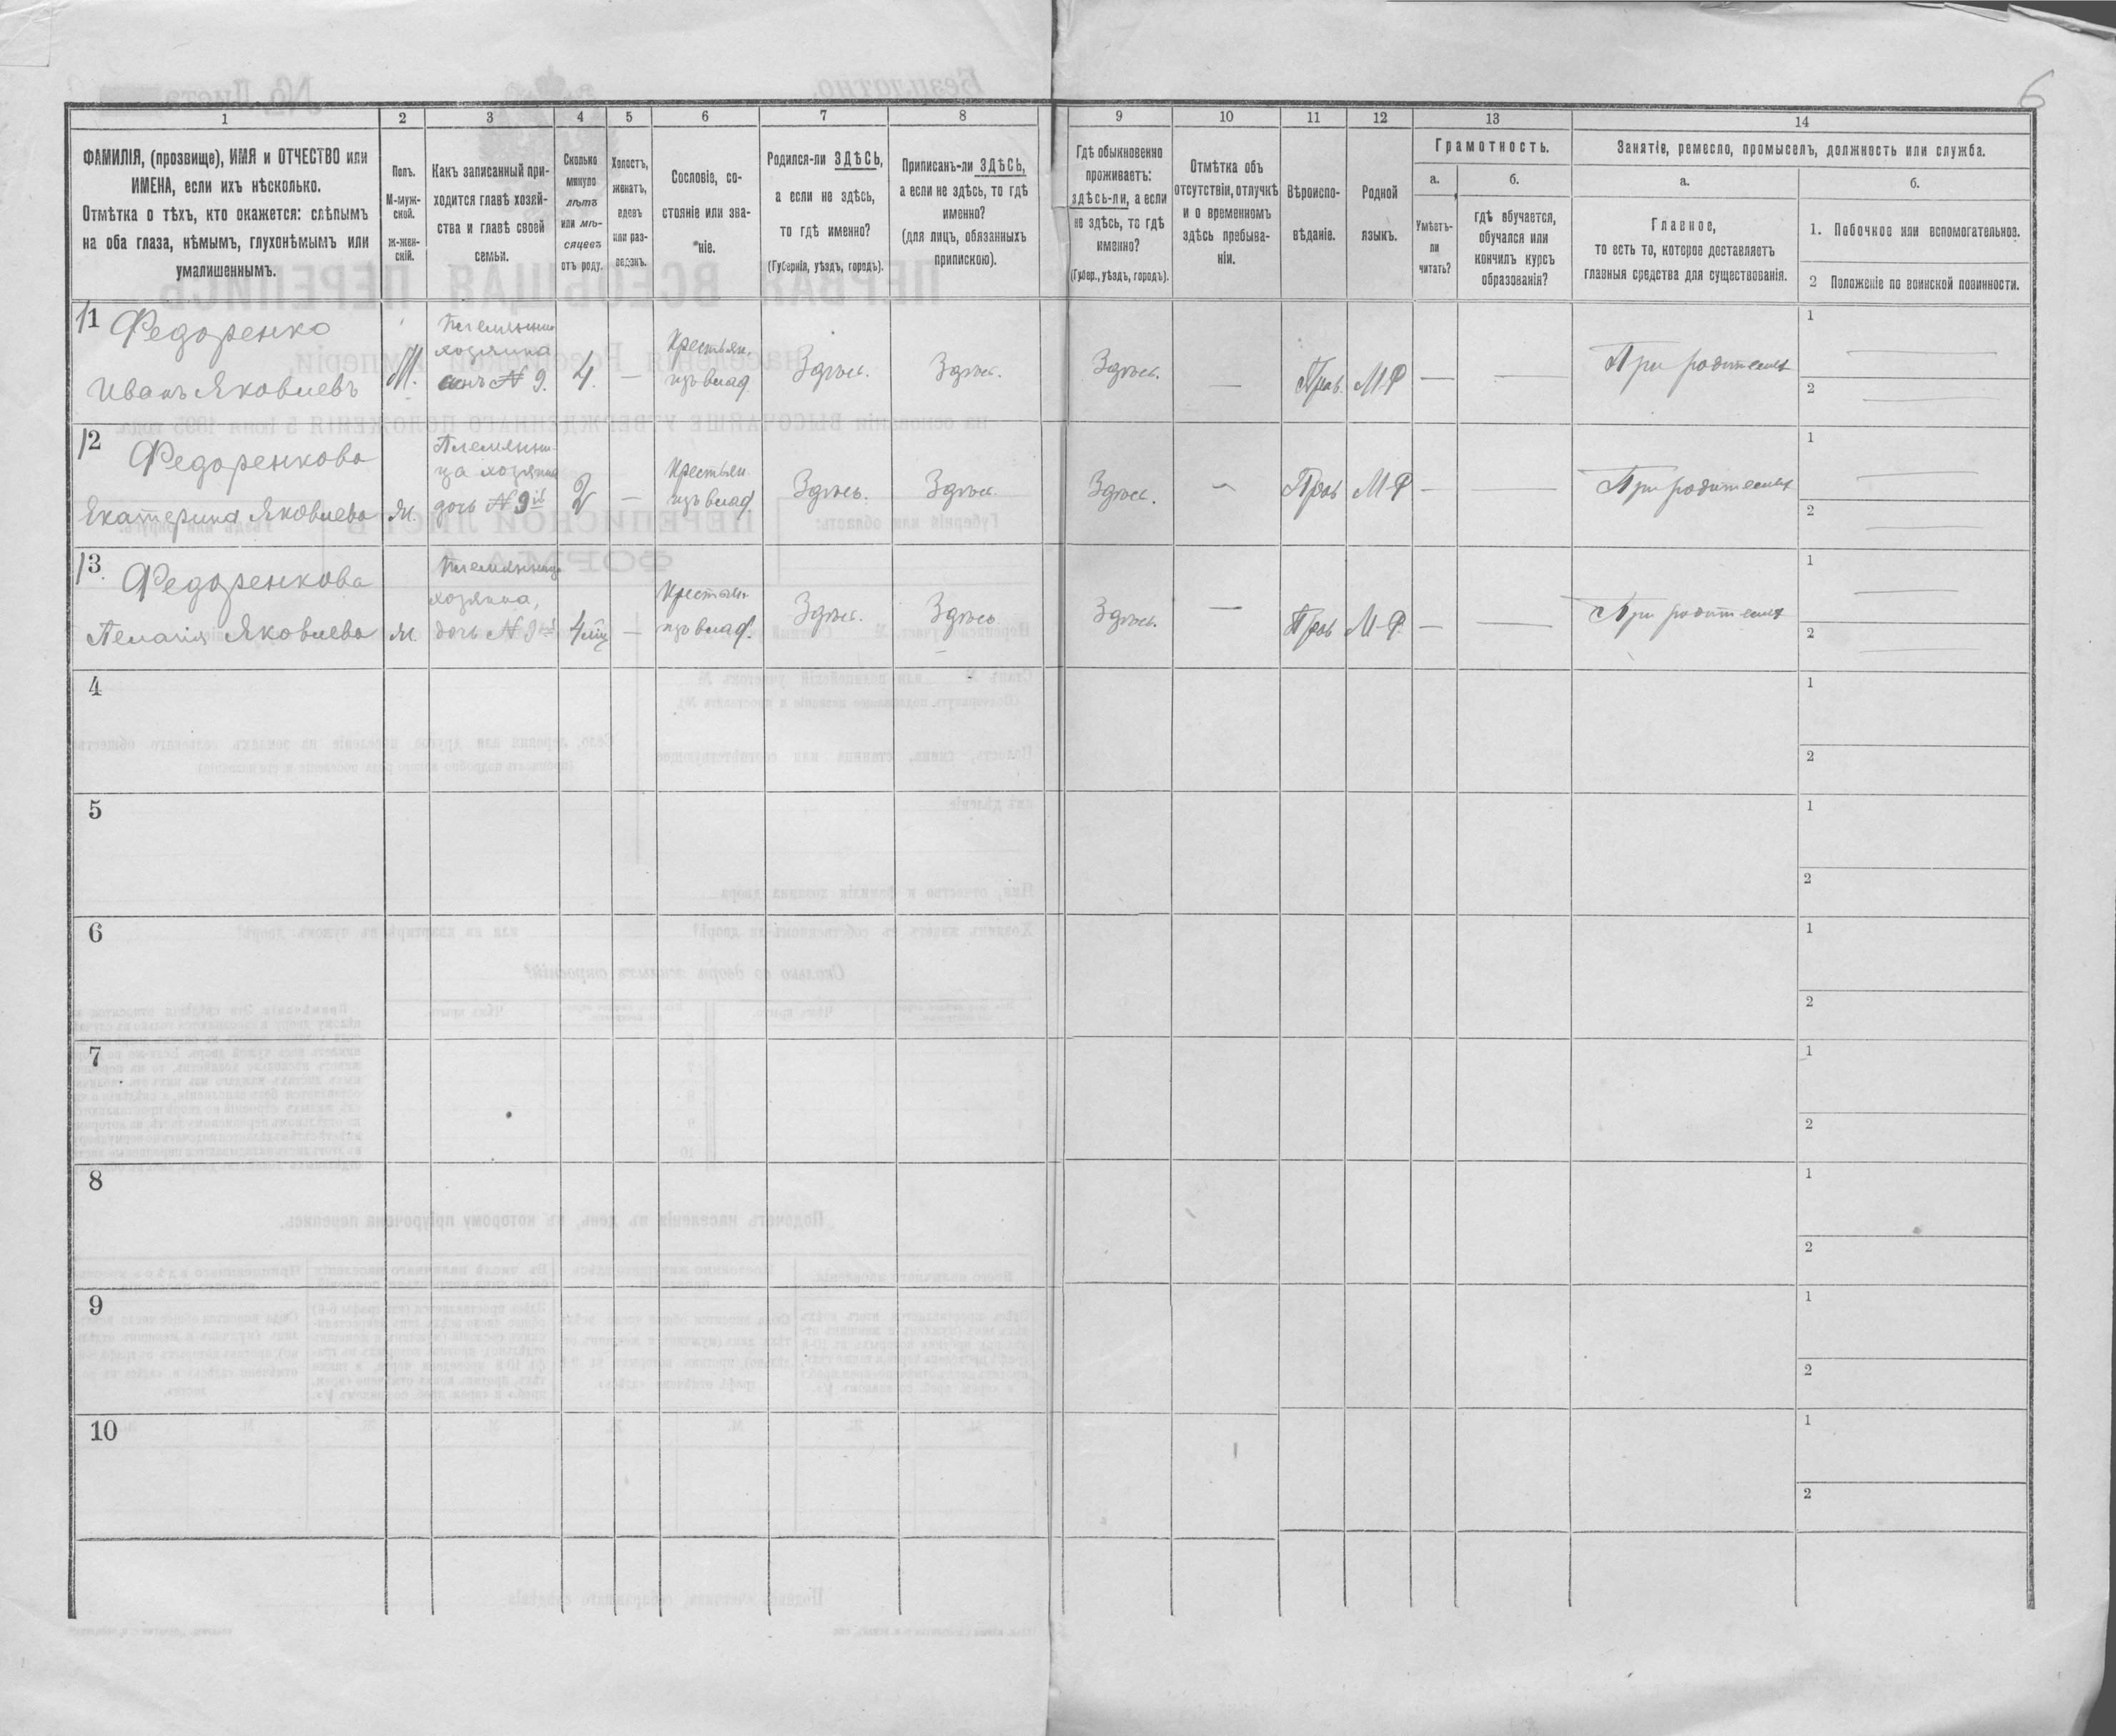 6
1 2 3 4 5 6 7 8 9 10 11 12 13 14
ФАМИЛІЯ, (прозвище), ИМЯ и ОТЧЕСТВО или
ИМЕНА, если ихъ нѣсколько.
Отмѣтка о тѣхъ, кто окажется: слѣпымъ
на оба глаза, нѣмымъ, глухонѣмымъ или
умалишеннымъ.
Полъ.
М-муж-
ской.
ж-жен-
скій.
Какъ записанный при-
ходится главѣ хозяй-
ства и главѣ своей
семьи.
Сколько
минуло
лѣтъ
или мѣ-
сяцевъ
отъ роду.
Холостъ,
женатъ,
вдовъ
или раз-
веденъ.
Сословіе, со-
стояніе или зва-
ніе.
Родился-ли ЗДѢСЬ,
а если не здѣсь,
то гдѣ именно?
(Губернія, уѣздъ, городъ).
Приписанъ-ли ЗДѢСЬ,
а если не здѣсь, то гдѣ
именно?
(для лицъ, обязанныхъ
припискою).
Гдѣ обыкновенно
проживаетъ:
здѣсь-ли, а если
не здѣсь, то гдѣ
именно?
(Губер., уѣздъ, городъ).
Отмѣтка объ
отсутствіи, отлучкѣ
и о временномъ
здѣсь пребыва-
ніи.
Вѣроиспо-
вѣданіе.
Родной
языкъ.
Грамотность.
а.
Умѣетъ-
ли
читать?
б.
гдѣ обучается,
обучался или
кончилъ курсъ
образованія?
Занятіе, ремесло, промыселъ, должность или служба.
а.
Главное,
то есть то, которое доставляетъ
главныя средства для существованія.
б.
1. Побочное или вспомогательное.
2 Положеніе по воинской повинности.
11 Федоренко
Иванъ Яковлевъ
М.
Племянник
хозяина
сынъ № 9.
4.
—
Крестьян.
изъ влад.
Здѣсь.
Здѣсь.
Здѣсь.
—
Прав.
М-Р
—
—
При родителях
1
2
12 Федоренкова
Екатерина Яковлева
ж.
Племянни-
ца хозяина
дочь № 9й
2
—
Крестьян.
изъ влад.
Здѣсь.
Здѣсь.
Здѣсь.
—
Прав
М-Р
—
—
При родителях
1
2
13. Федоренкова
Пелагія Яковлева
ж.
Племянница
хозяина,
дочь № 9й
4 мѣц
—
Крестьян.
изъ влад.
Здѣсь.
Здѣсь
Здѣсь.
—
Прав
М-Р.
—
—
При родителях
1
2
4
1
2
5
1
2
6
1
2
7
1
2
8
1
2
9
1
2
10
1
2